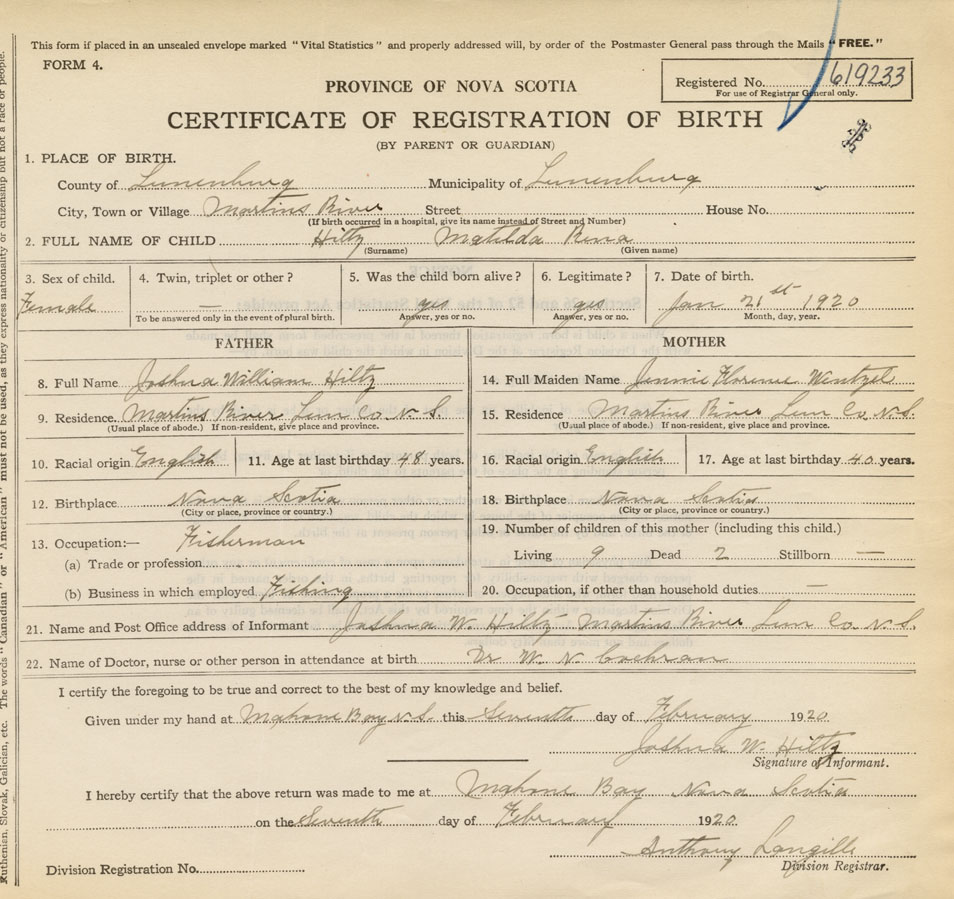 This form if placed in an unsealed envelope marked "Vital Statistics" and properly addressed will, by order of the Postmaster General pass through the Mails "FREE."
FORM 4.
Registered No. 619233
For use of Registrar General only.
PROVINCE OF NOVA SCOTIA
CERTIFICATE OF REGISTRATION OF BIRTH
(BY PARENT OR GUARDIAN)
1. PLACE OF BIRTH.
County of Lunenburg Municipality of Lunenburg
City, Town or Village Martins River Street House No.
(If birth occurred in a hospital, give its name instead of Street and Number)
2. FULL NAME OF CHILD Hiltz Matilda Rena
(Surname) (Given name)
3. Sex of child. 4. Twin, triplet or other? 5. Was the child born alive? 6. Legitimate? 7. Date of birth.
Female — yes yes Jan 21st 1920
To be answered only in the event of plural birth. Answer, yes or no. Answer, yes or no. Month, day, year.
FATHER
8. Full Name Joshua William Hiltz
9. Residence Martins River Lun Co N.S.
(Usual place of abode.) If non-resident, give place and province.
10. Racial origin English 11. Age at last birthday 48 years.
12. Birthplace Nova Scotia
(City or place, province or country.)
13. Occupation:— Fisherman
(a) Trade or profession
(b) Business in which employed Fishing
MOTHER
14. Full Maiden Name Jennie Florence Wentzel
15. Residence Martins River Lun Co N.S.
(Usual place of abode.) If non-resident, give place and province.
16. Racial origin English 17. Age at last birthday 40 years.
18. Birthplace Nova Scotia
(City or place, province or country.)
19. Number of children of this mother (including this child.)
Living 9 Dead 2 Stillborn —
20. Occupation, if other than household duties —
21. Name and Post Office address of Informant Joshua W. Hiltz Martins River Lun Co N.S.
22. Name of Doctor, nurse or other person in attendance at birth Dr W. N. Cochran
I certify the foregoing to be true and correct to the best of my knowledge and belief.
Given under my hand at Mahone Bay N.S. this Seventh day of February 1920
Joshua W. Hiltz
Signature of Informant.
I hereby certify that the above return was made to me at Mahone Bay Nova Scotia
on the Seventh day of February 1920
Anthony Langille
Division Registrar.
Division Registration No.
Ruthenian, Slovak, Galician, etc. The words "Canadian" or "American" must not be used, as they express nationality or citizenship but not a race or people.